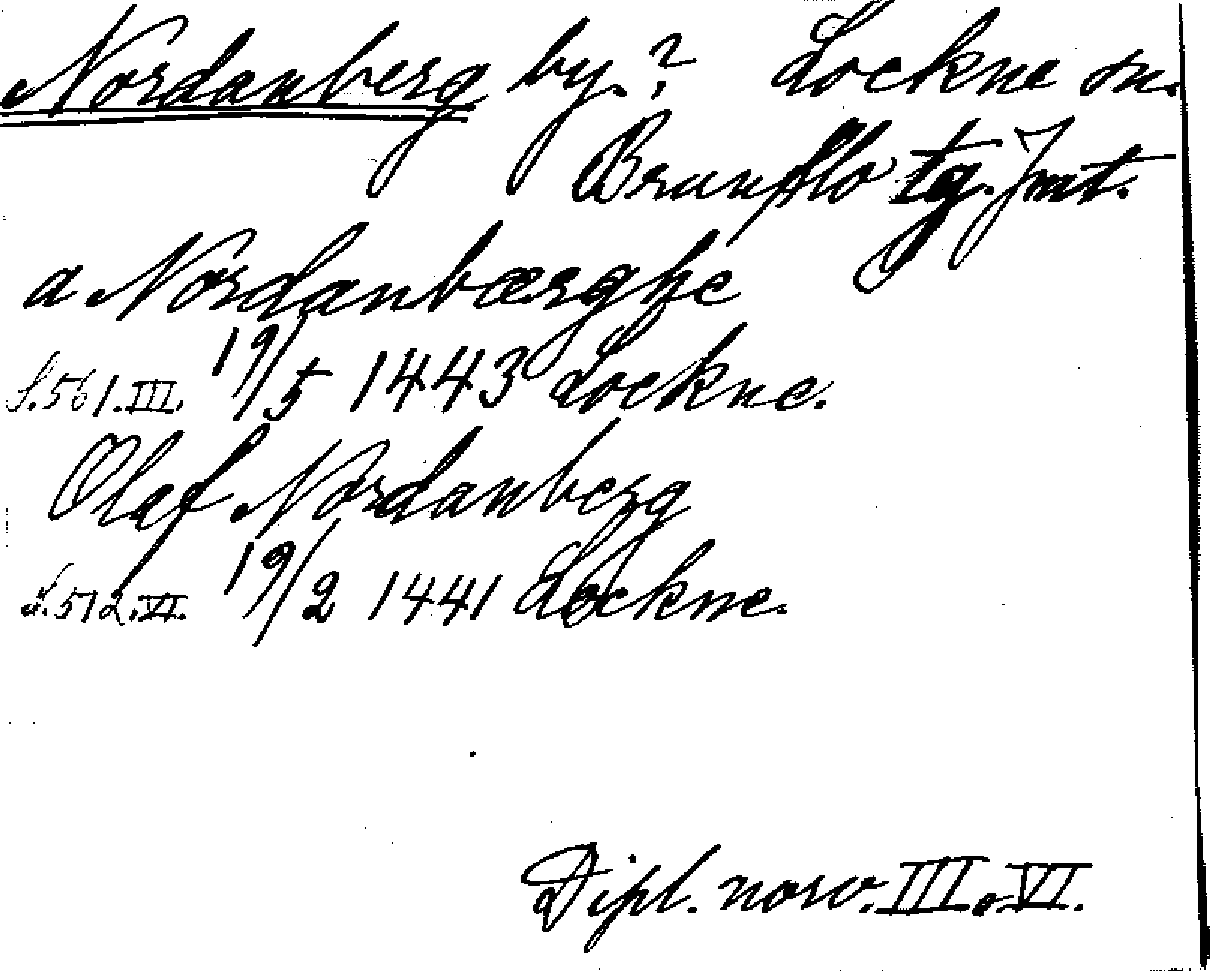 Nordanberg by.? Lockne sn.
Brunflo tg. Jmt.
a Nordanbærghe
S.561.III. 19/5 1443 Lockne.
Olaf Nordanberg
S.512.VI. 19/2 1441 Lockne.
Dipl. norv. III. o. VI.